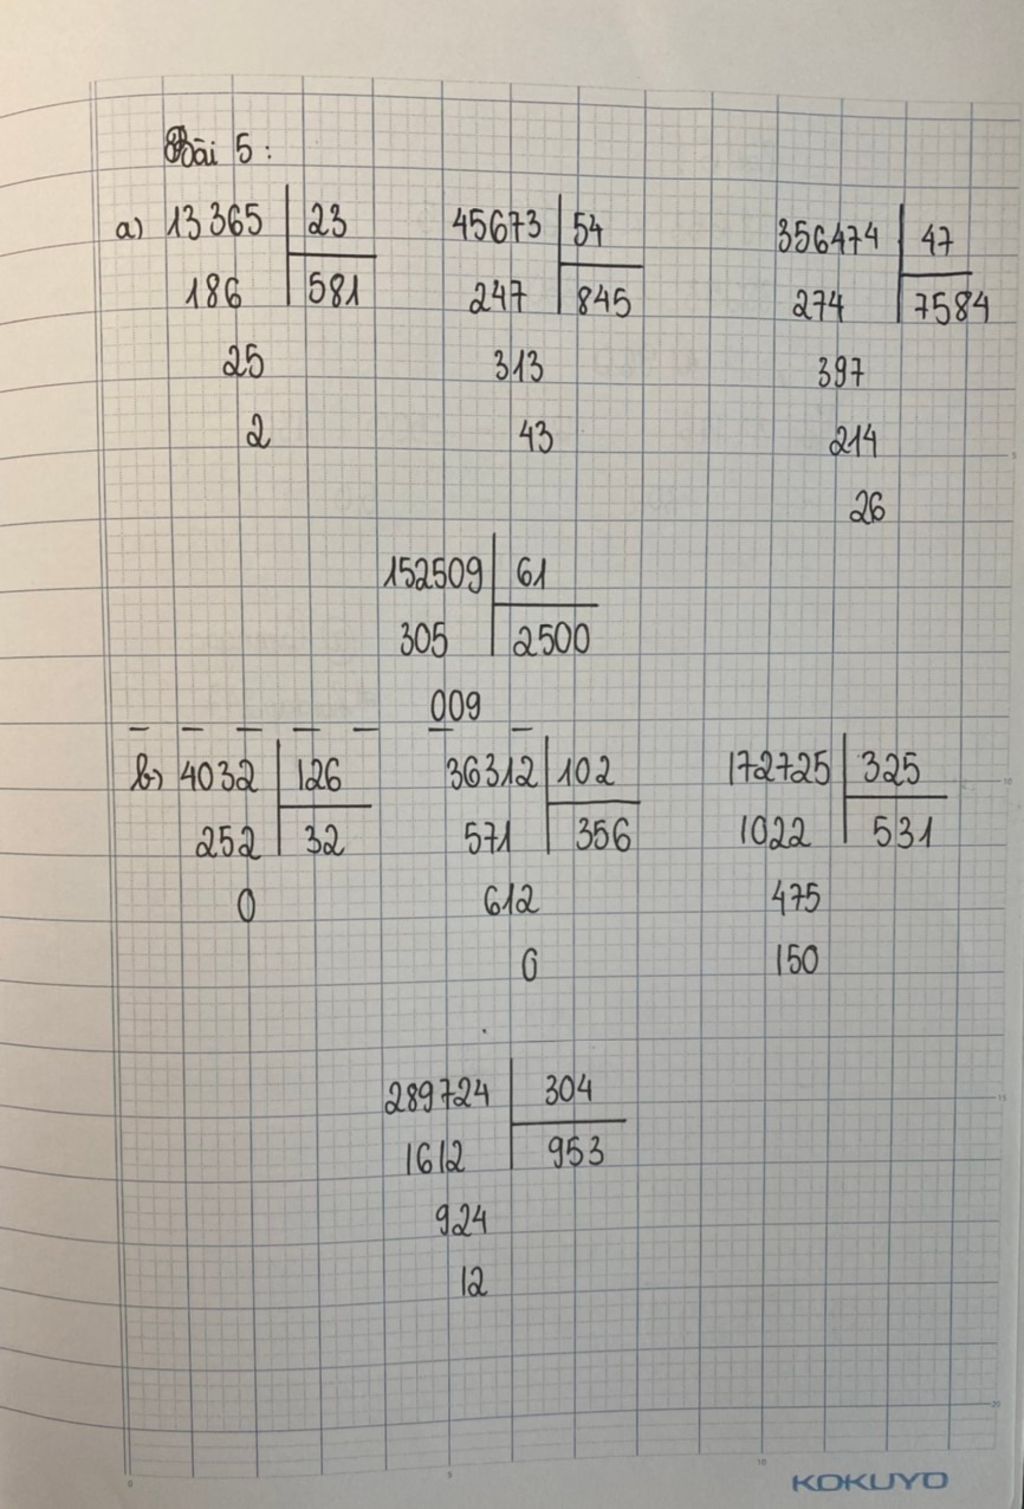 Bài 5:
a) 13365 23 45673 54 356474 47
186 581 247 845 274 7584
25 313 397
2 43 214
26
152509 61
305 2500
009
b) 4032 126 36312 102 172725 325
252 32 571 356 1022 531
0 612 475
0 150
289724 304
1612 953
924
12
5
10
15
20
0 5 10
KOKUYO